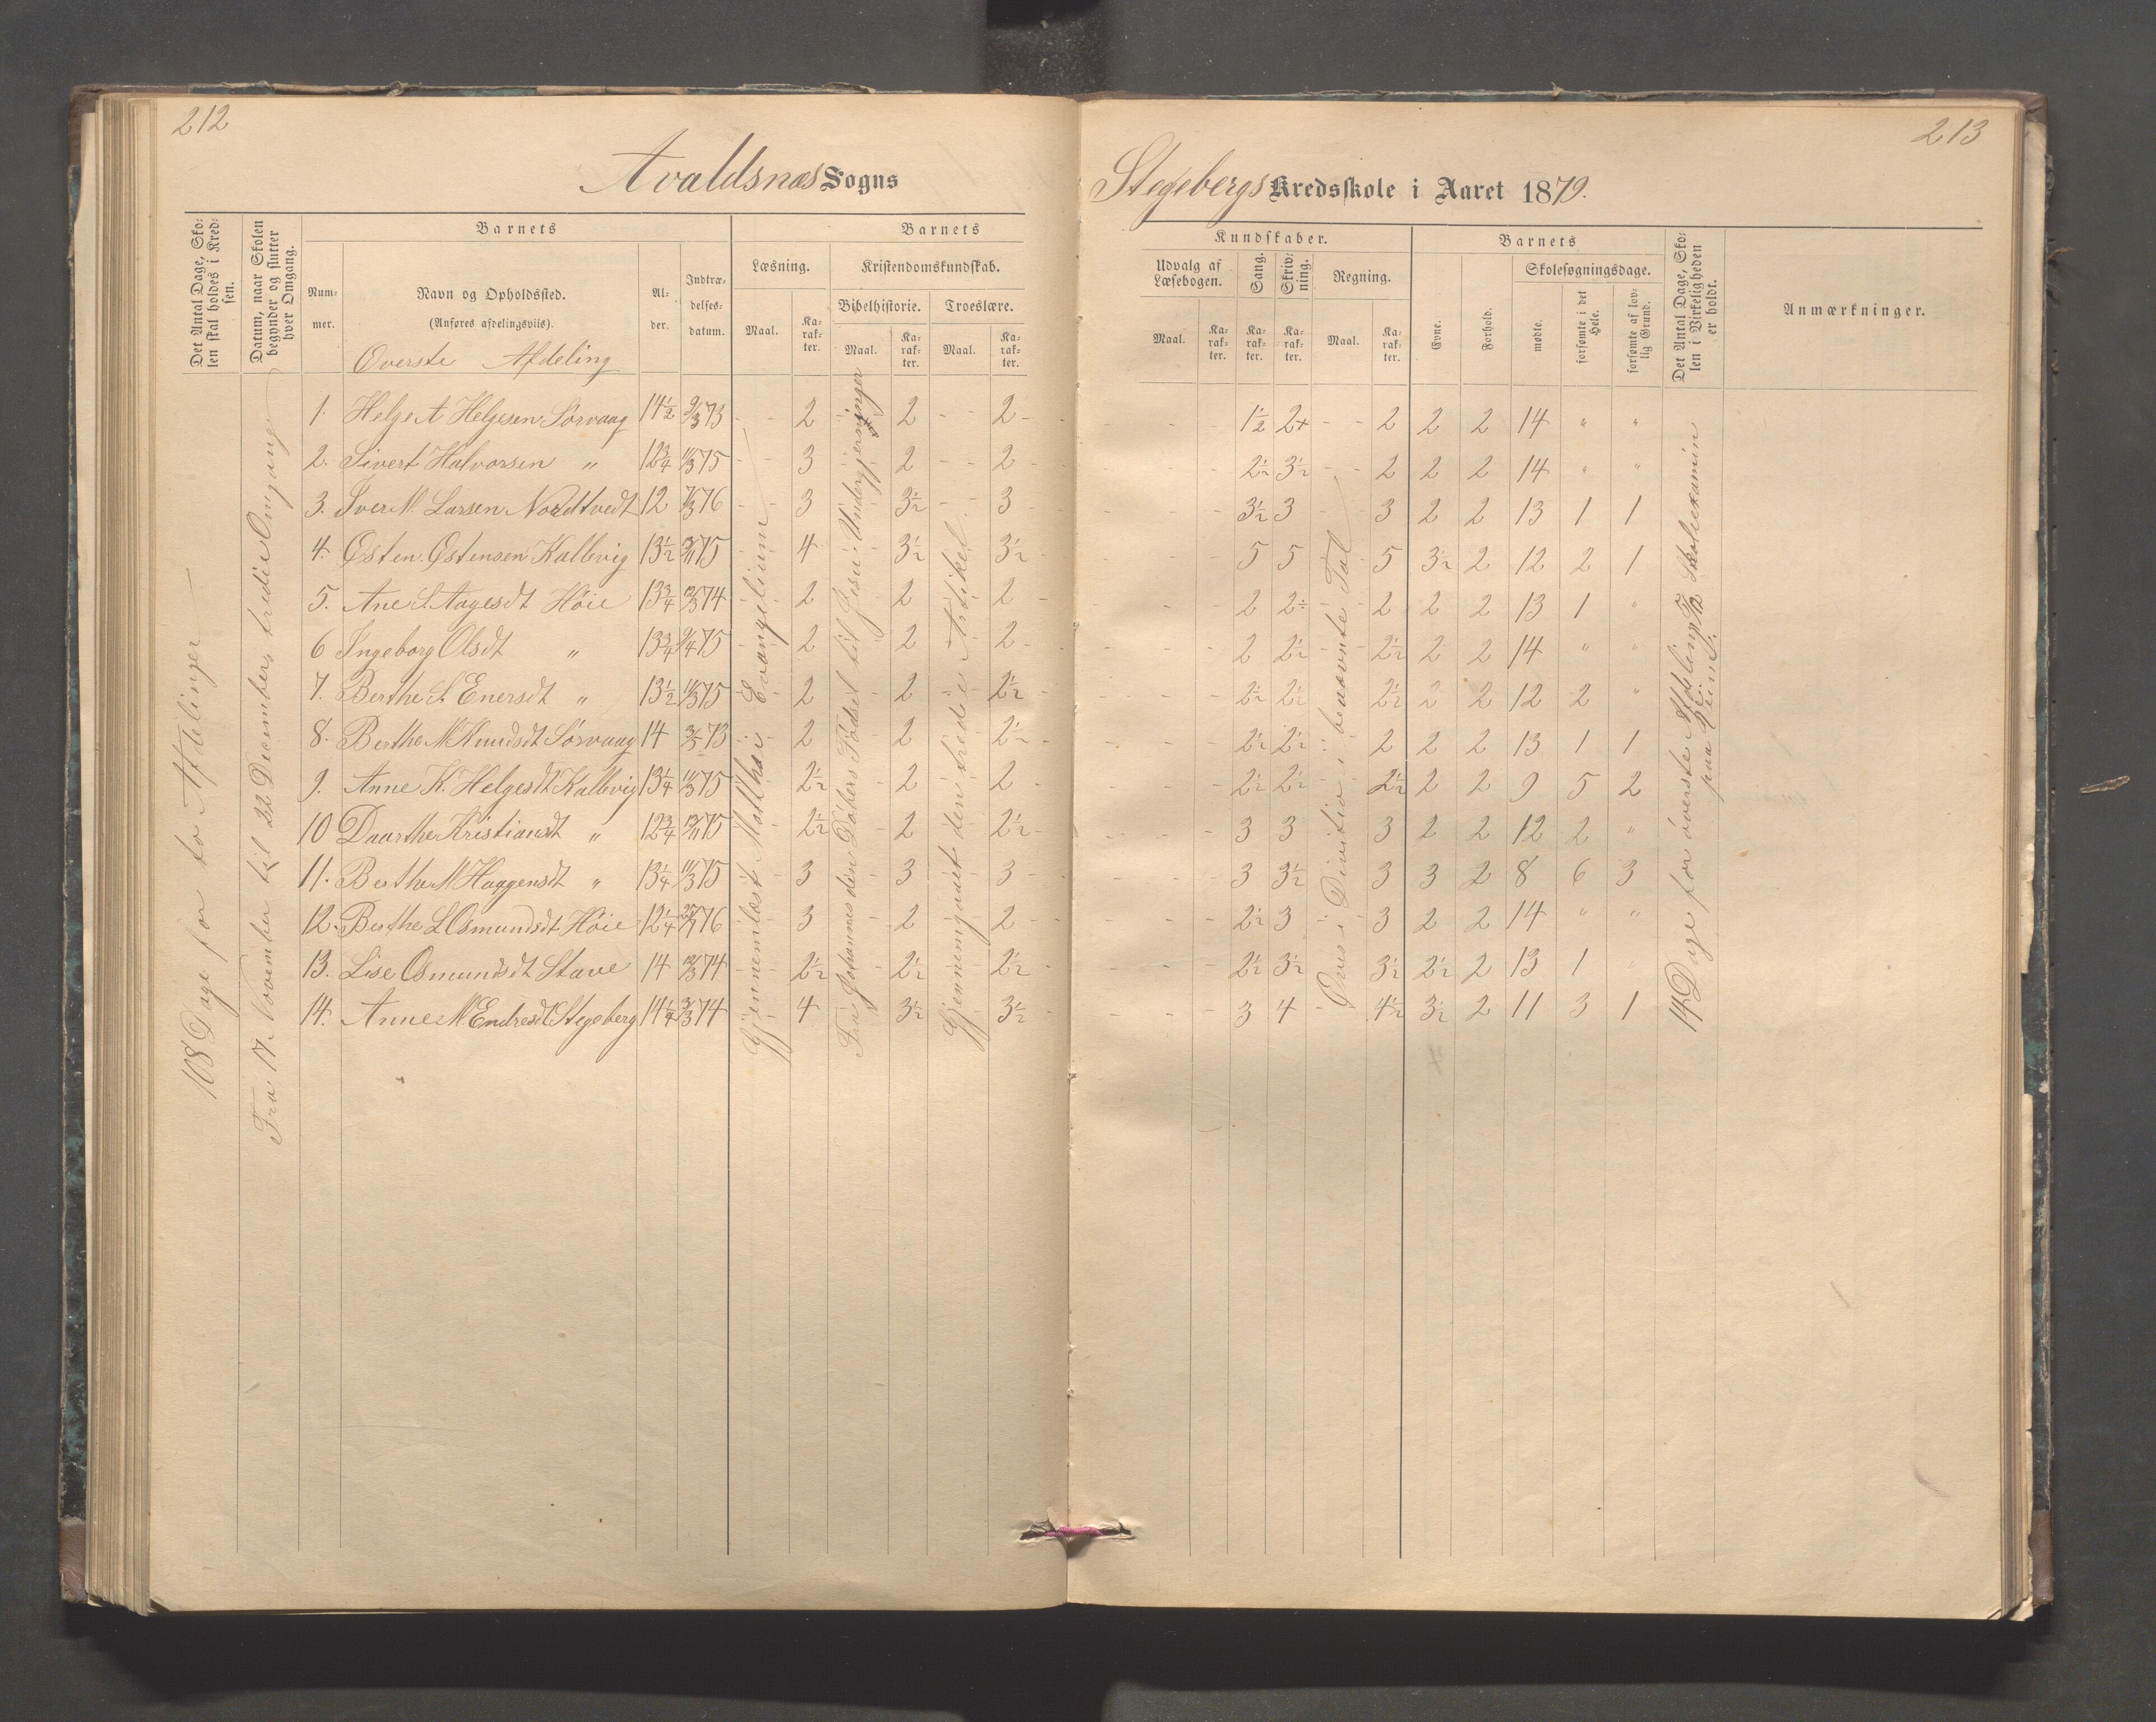 212
213
Avaldsnæs Sogns
Stegebergs Kredsskole i Aaret 1879.
Det Antal Dage, Sko-
len skal holdes i Kred-
sen.
Datum, naar Skolen
begynder og slutter
hver Omgang.
Barnets
Num-
mer.
Navn og Opholdssted.
(Anføres afdelingsviis).
Øverste Afdeling
Al-
der.
Indtræ-
delses-
datum.
Barnets
Læsning.
Maal.
Ka-
rak-
ter.
Kristendomskundskab.
Bibelhistorie.
Maal.
Ka-
rak-
ter.
Troeslære.
Maal.
Ka-
rak-
ter.
Kundskaber.
Udvalg af
Læsebogen.
Maal.
Ka-
rak-
ter.
Sang.
Ka-
rak-
ter.
Skriv-
ning.
Ka-
rak-
ter.
Regning.
Maal.
Ka-
rak-
ter.
Barnets
Evne.
Forhold.
Skolesøgningsdage.
mødte.
forsømte i det
Hele.
forsømte af lov-
lig Grund.
Det Antal Dage, Sko-
len i Virkeligheden
er holdt.
Anmærkninger.
108 Dage for to Afdelinger
Fra 17. November til 22 December, tredie Omgang
Gjennemlæst Matthæi Evangelium
Fra Johannes den Døbers Fødsel til Jesu Undergjerninger
Gjennemgaaet den tredie Artikel
Øves i Divition i benævnte Tal
14 Dage for øverste Afdeling
paa
1. Helge A Helgesen Sørvaag 14½ 9/3 73 - - 2 - 2 - - 2 - - - - 1½ 2+ - - 2 2 2 14 " "
2. Sivert Halvorsen " 12¾ 11/3 75 - - 3 2 - - 2 - - - - 2½ 3½ - - 2 2 2 14 " "
3. Iver M. Larsen Nordtvedt 12 7/3 76 - - 3 3½ - - 3 - - - - 3½ 3 3 2 2 13 1 1
4. Østen Østensen Kallevig 13½ 75 - 4 3½ 3½ - - - - 5 5 5 3½ 2 12 2 1
5. Ane S. Aagesdt Høie 13¾ 74 - 2 2 2 - - - - 2 2÷ 2 2 2 13 1 "
6 Ingeborg Olsdt " 13¾ 9/4 75 - 2 2 2 - - - - 2 2½ 2½ 2 2 14 " "
7. Berthe S. Enersdt " 13½ 11/3 75 2 2 2½ - - - - 2½ 2½ 2½ 2 2 12 2 "
8. Berthe M Knudsdt Sørvaag 14 73 2 2 2½ - - - - 2½ 2½ 2 2 2 13 1 1
9. Anne K. Helgesdt Kallevig 13¼ 11/3 75 2½ 2 2 - - - - 2½ 2½ 2½ 2 2 9 5 2
10 Daarthe Kristiansdt " 12¾ 75 2½ 2 2½ - - - - 3 3 3 2 2 12 2 "
11. Berthe M Haagensdt " 13¼ 11/3 75 3 3 3 - - - - 3 3½ 3 3 2 8 6 3
12. Berthe L Osmundsdt Høie 12¼ 76 3 2 2 - - - - 2½ 3 3 2 2 14 " "
13. Lise Osmundsdt Stave 14 74 2½ 2½ 2½ - - - - 2½ 3½ 3½ 2½ 2 13 1 "
14. Anne M. Endresdt Stegeberg 14¼ 74 4 3½ 3½ - - - - 3 4 4½ 3½ 2 11 3 1